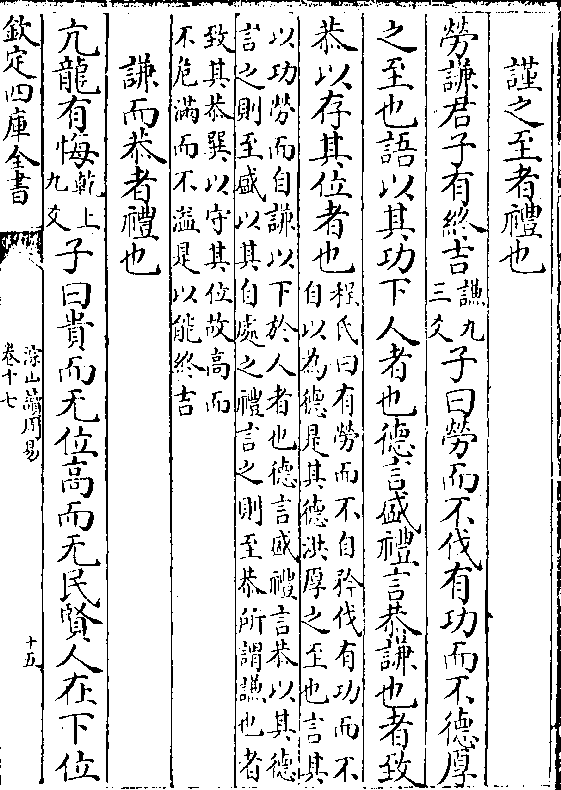 謹之至者禮也
勞謙君子有終吉謙九三爻子曰勞而不伐有功而不德厚
之至也語以其功下人者也德言盛禮言恭謙也者致
恭以存其位者也程氏曰有勞而不自矜伐有功而不
自以為德是其德洪厚之至也言其
以功勞而自謙以下於人者也德言盛禮言恭以其德
言之則至盛以其自處之禮言之則至恭所謂謙也者
致其恭巽以守其位故高而
不危滿而不溢是以能終吉
謙而恭者禮也
亢龍有悔乾上九爻子曰貴而无位高而无民賢人在下位
欽定四庫全書
涂山讀周易
卷十七
十五